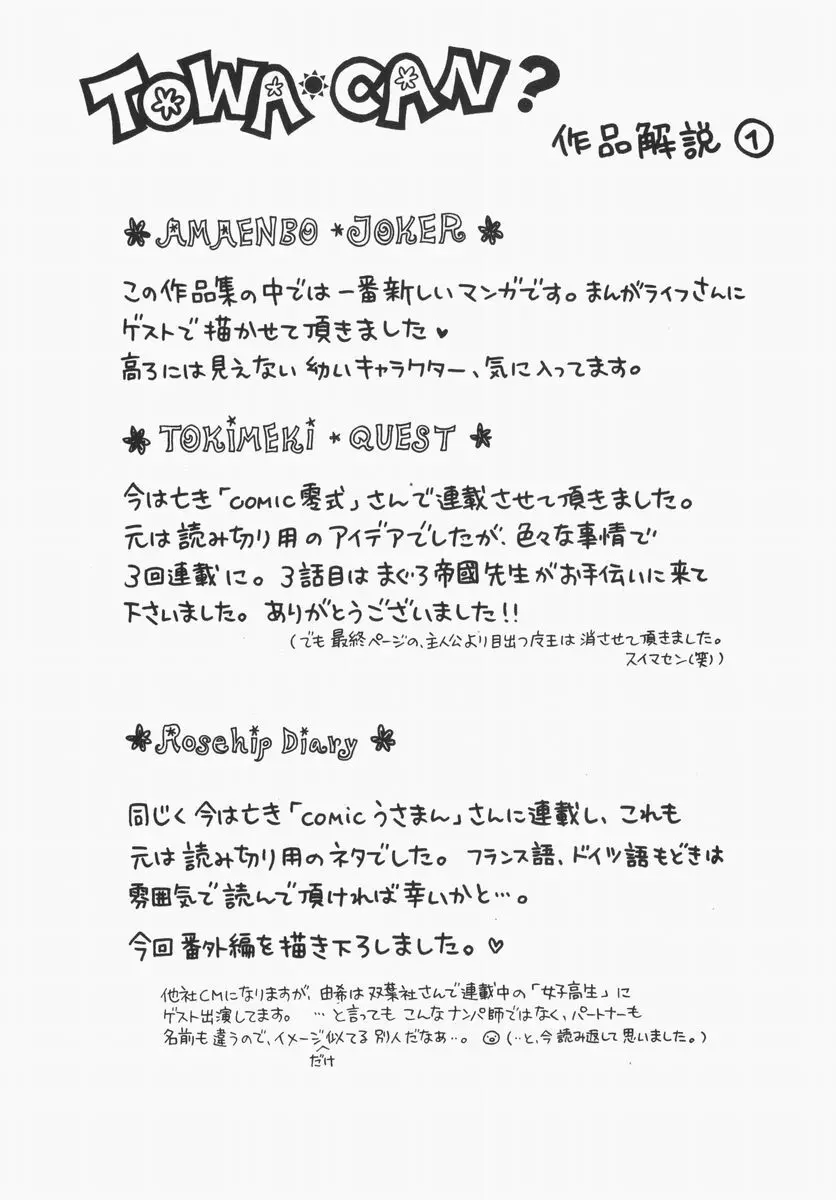 TOWA CAN?
作品解説 ①
AMAENBO * JOKER
この作品集の中では一番新しいマンガです。まんがライフさんに
ゲストで描かせて頂きました♥
高ろには見えない幼いキャラクター、気に入ってます。
TOKIMEKI * QUEST
今は亡き「COMIC零式」さんで連載させて頂きました。
元は読み切り用のアイデアでしたが、色々な事情で
3回連載に。3話目はまぐろ帝國先生がお手伝いに来て
下さいました。ありがとうございました!!
(でも最終ページの、主人公より目出つ皮王は消させて頂きました。
スイマセン(笑))
Rosehip Diary
同じく今は亡き「comicうさまん」さんに連載し、これも
元は読み切り用のネタでした。フランス語、ドイツ語もどきは
雰囲気で読んで頂ければ幸いかと…。
今回番外編を描き下ろしました。♡
他社CMになりますが、由希は双葉社さんで連載中の「女子高生」に
ゲスト出演してます。…と言ってもこんなナンパ師ではなく、パートナーも
名前も違うので、イメージだけ似てる別人だなあ…。(…と、今読み返して思いました。)